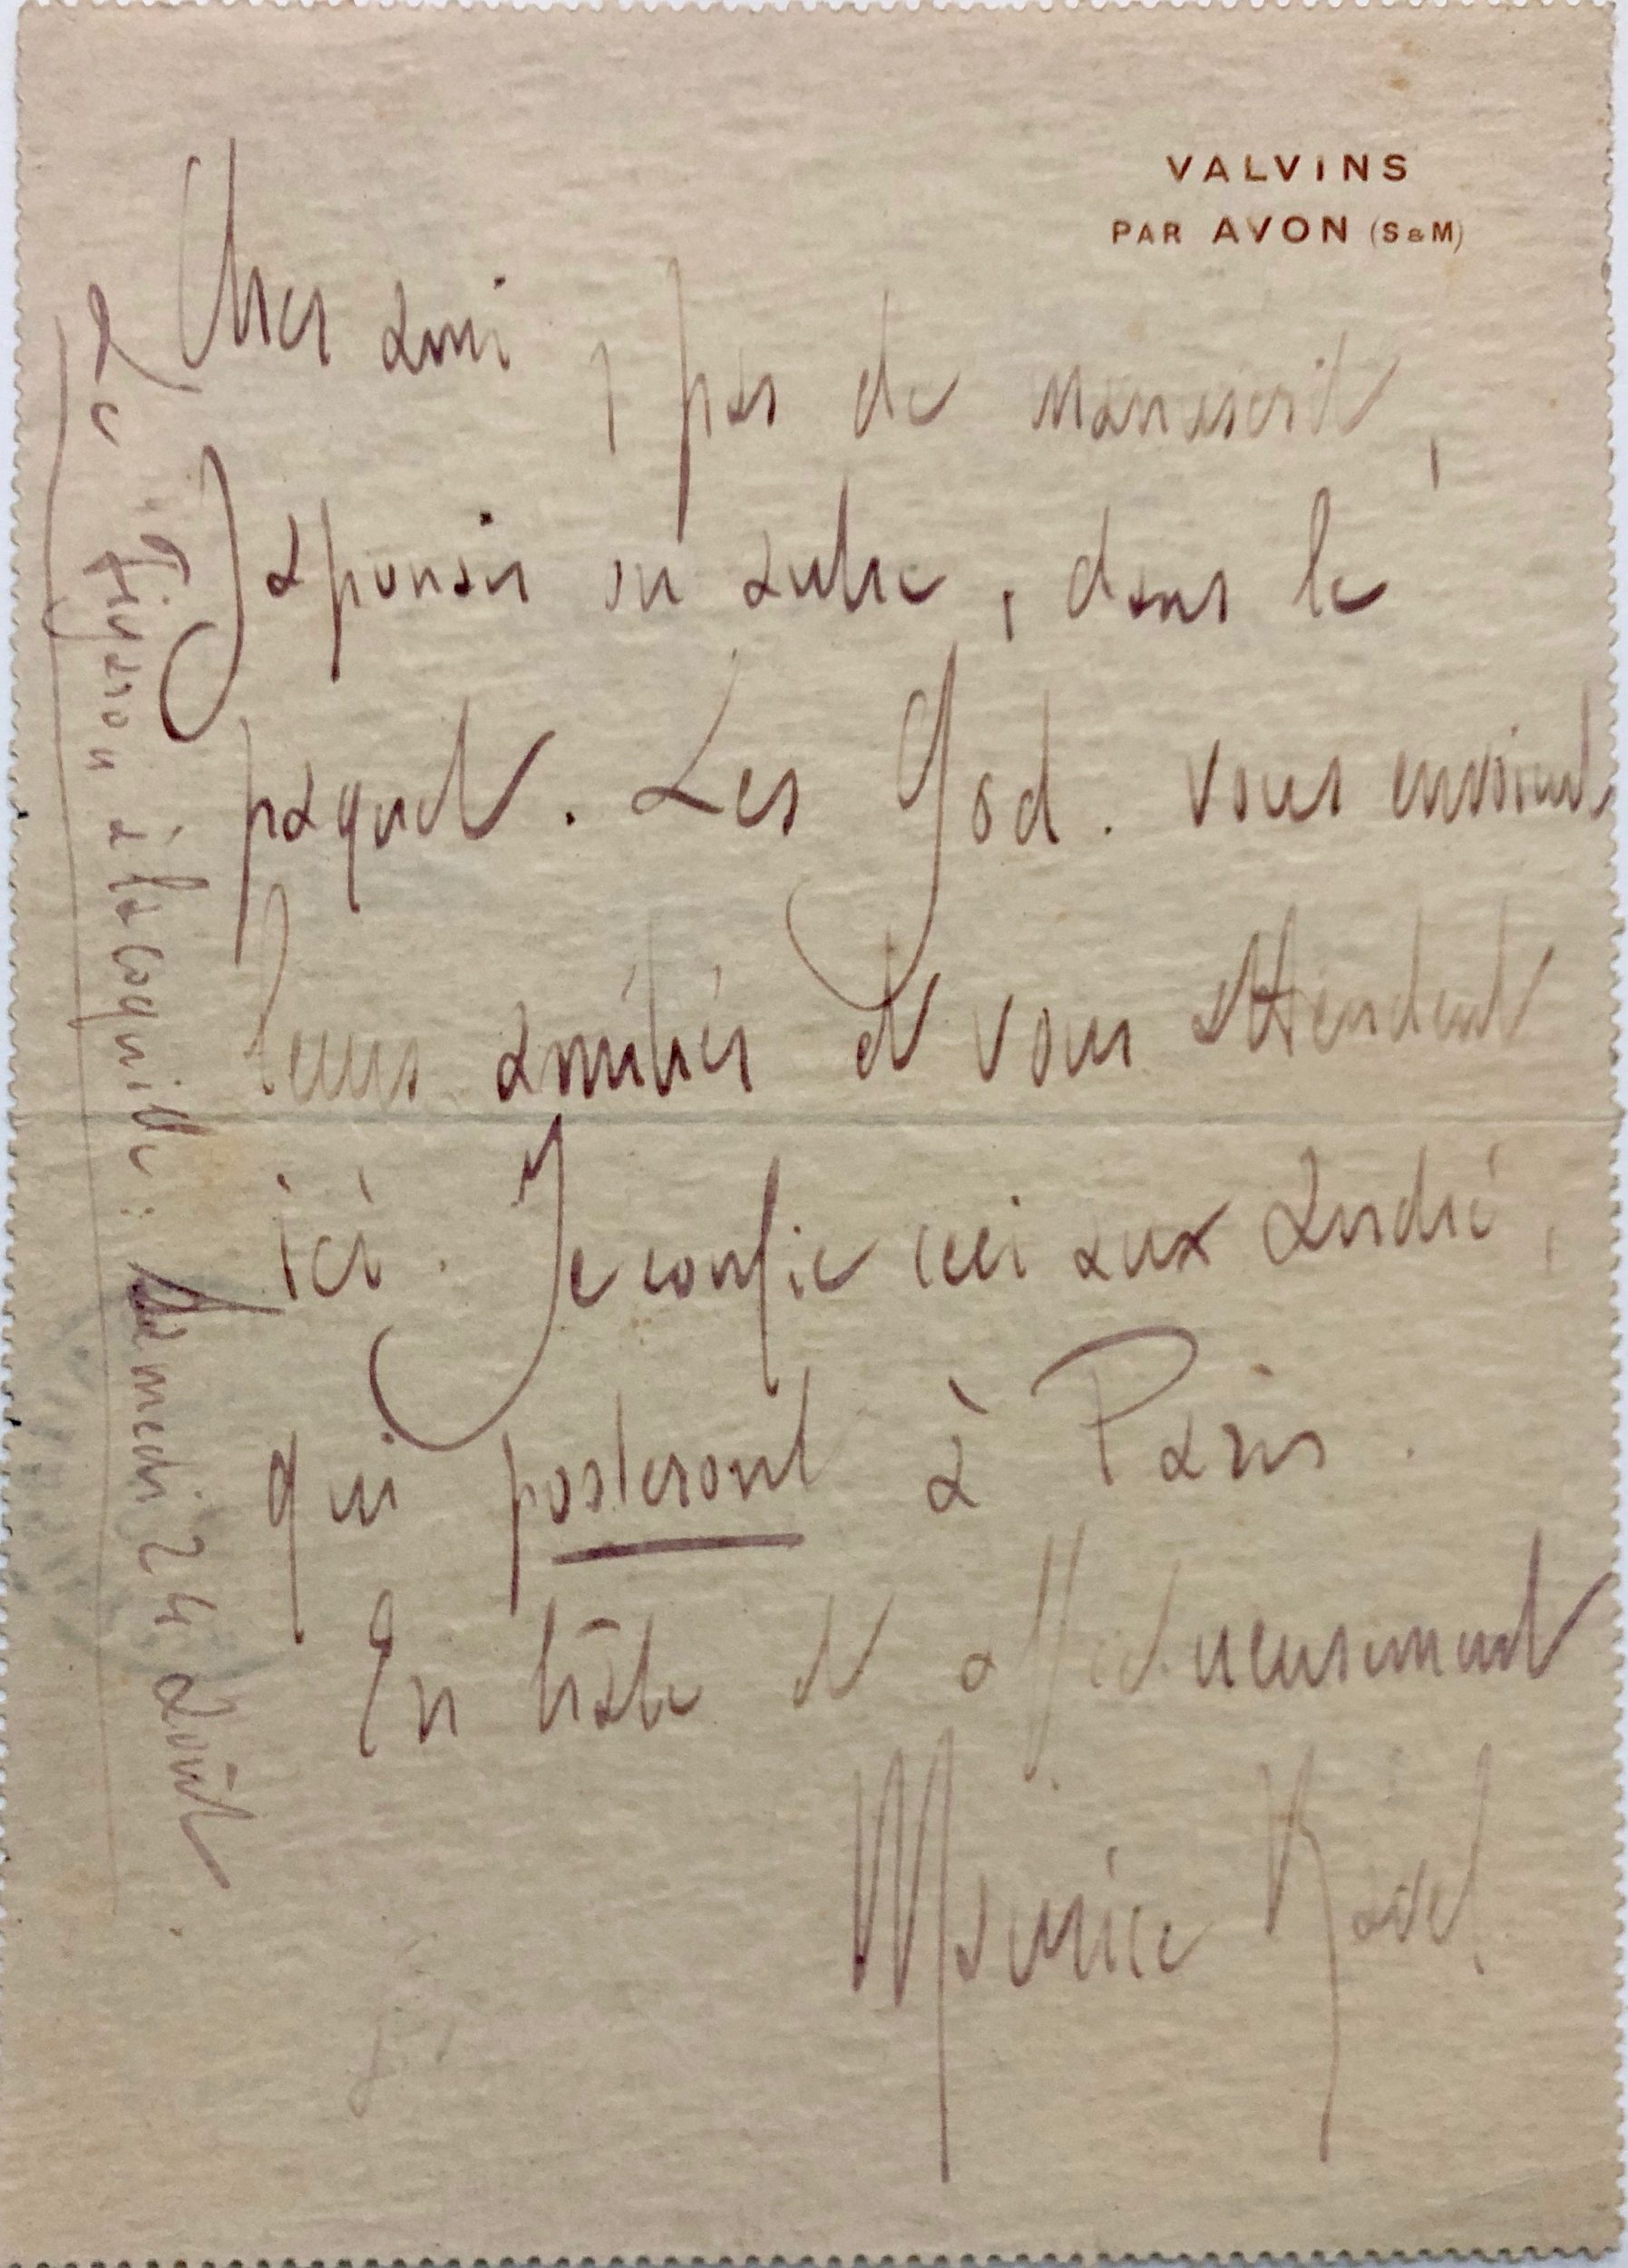 VALVINS
PAR AVON (S & M)
Cher ami, pas de manuscrit,
Japonais ou autre, dans le
paquet. Les God. vous envoient
leurs amitiés et vous attendent
ici. Je confie ceci aux André,
qui posteront à Paris.
En hâte et affectueusement
Maurice Ravel
Le "Figaro" à la coquille : Samedi 24 août.